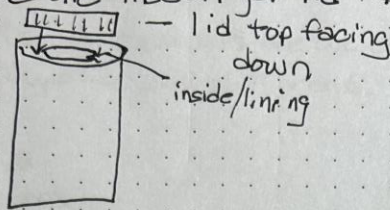 — lid top facing
down
inside/lining